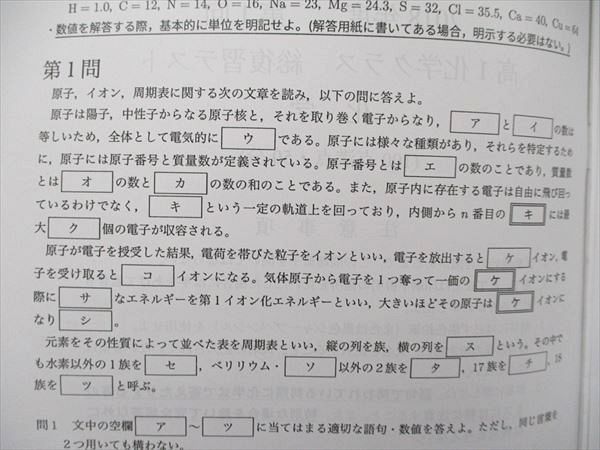 H = 1.0, C = 12, N = 14, O = 16, Na = 23, Mg = 24.3, S = 32, Cl = 35.5, Ca = 40, Cu = 64
・数値を解答する際，基本的に単位を明記せよ。(解答用紙に書いてある場合，明示する必要はない。)
第1問
原子，イオン，周期表に関する次の文章を読み，以下の問に答えよ。
原子は陽子，中性子からなる原子核と，それを取り巻く電子からなり， ア と イ の数は
等しいため，全体として電気的に ウ である。原子には様々な種類があり，それらを特定するため
に，原子には原子番号と質量数が定義されている。原子番号とは エ の数のことであり，質量数
とは オ の数と カ の数の和のことである。また，原子内に存在する電子は自由に飛び回っ
ているわけでなく， キ という一定の軌道上を回っており，内側から n 番目の キ には最
大 ク 個の電子が収容される。
原子が電子を授受した結果，電荷を帯びた粒子をイオンといい，電子を放出すると ケ イオン，電
子を受け取ると コ イオンになる。気体原子から電子を1つ奪って一価の ケ イオンにする
際に サ なエネルギーを第1イオン化エネルギーといい，大きいほどその原子は ケ イオンに
なり シ 。
元素をその性質によって並べた表を周期表といい，縦の列を族，横の列を ス という。その中で
も水素以外の1族を セ ，ベリリウム・ ソ 以外の2族を タ ，17族を チ ，18
族を ツ と呼ぶ。
問1 文中の空欄 ア ～ ツ に当てはまる適切な語句・数値を答えよ。ただし，同じ言葉を
2つ用いても構わない。